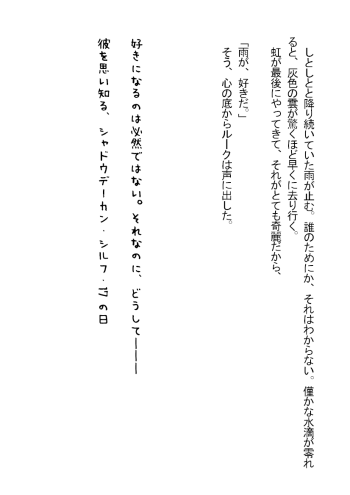 しとしとと降り続いていた雨が止む。誰のためにか、それはわからない。僅かな水滴が零れ
ると、灰色の雲が驚くほど早くに去り行く。
虹が最後にやってきて、それがとても奇麗だから、
「雨が、好きだ。」
そう、心の底からルークは声に出した。
好きになるのは必然ではない。それなのに、どうして―――
彼を思い知る、シャドウデーカン・シルフ・17の日